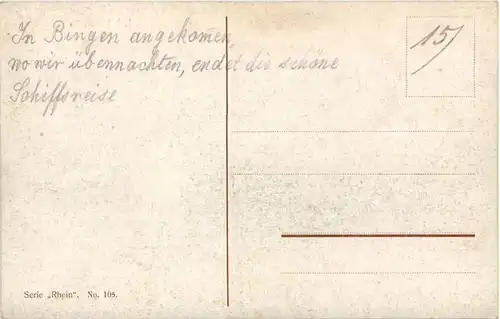 In Bingen angekom̄en,
wo wir übennachten, endet die schöne
Schiffsreise
15
Serie „Rhein“, No. 105.